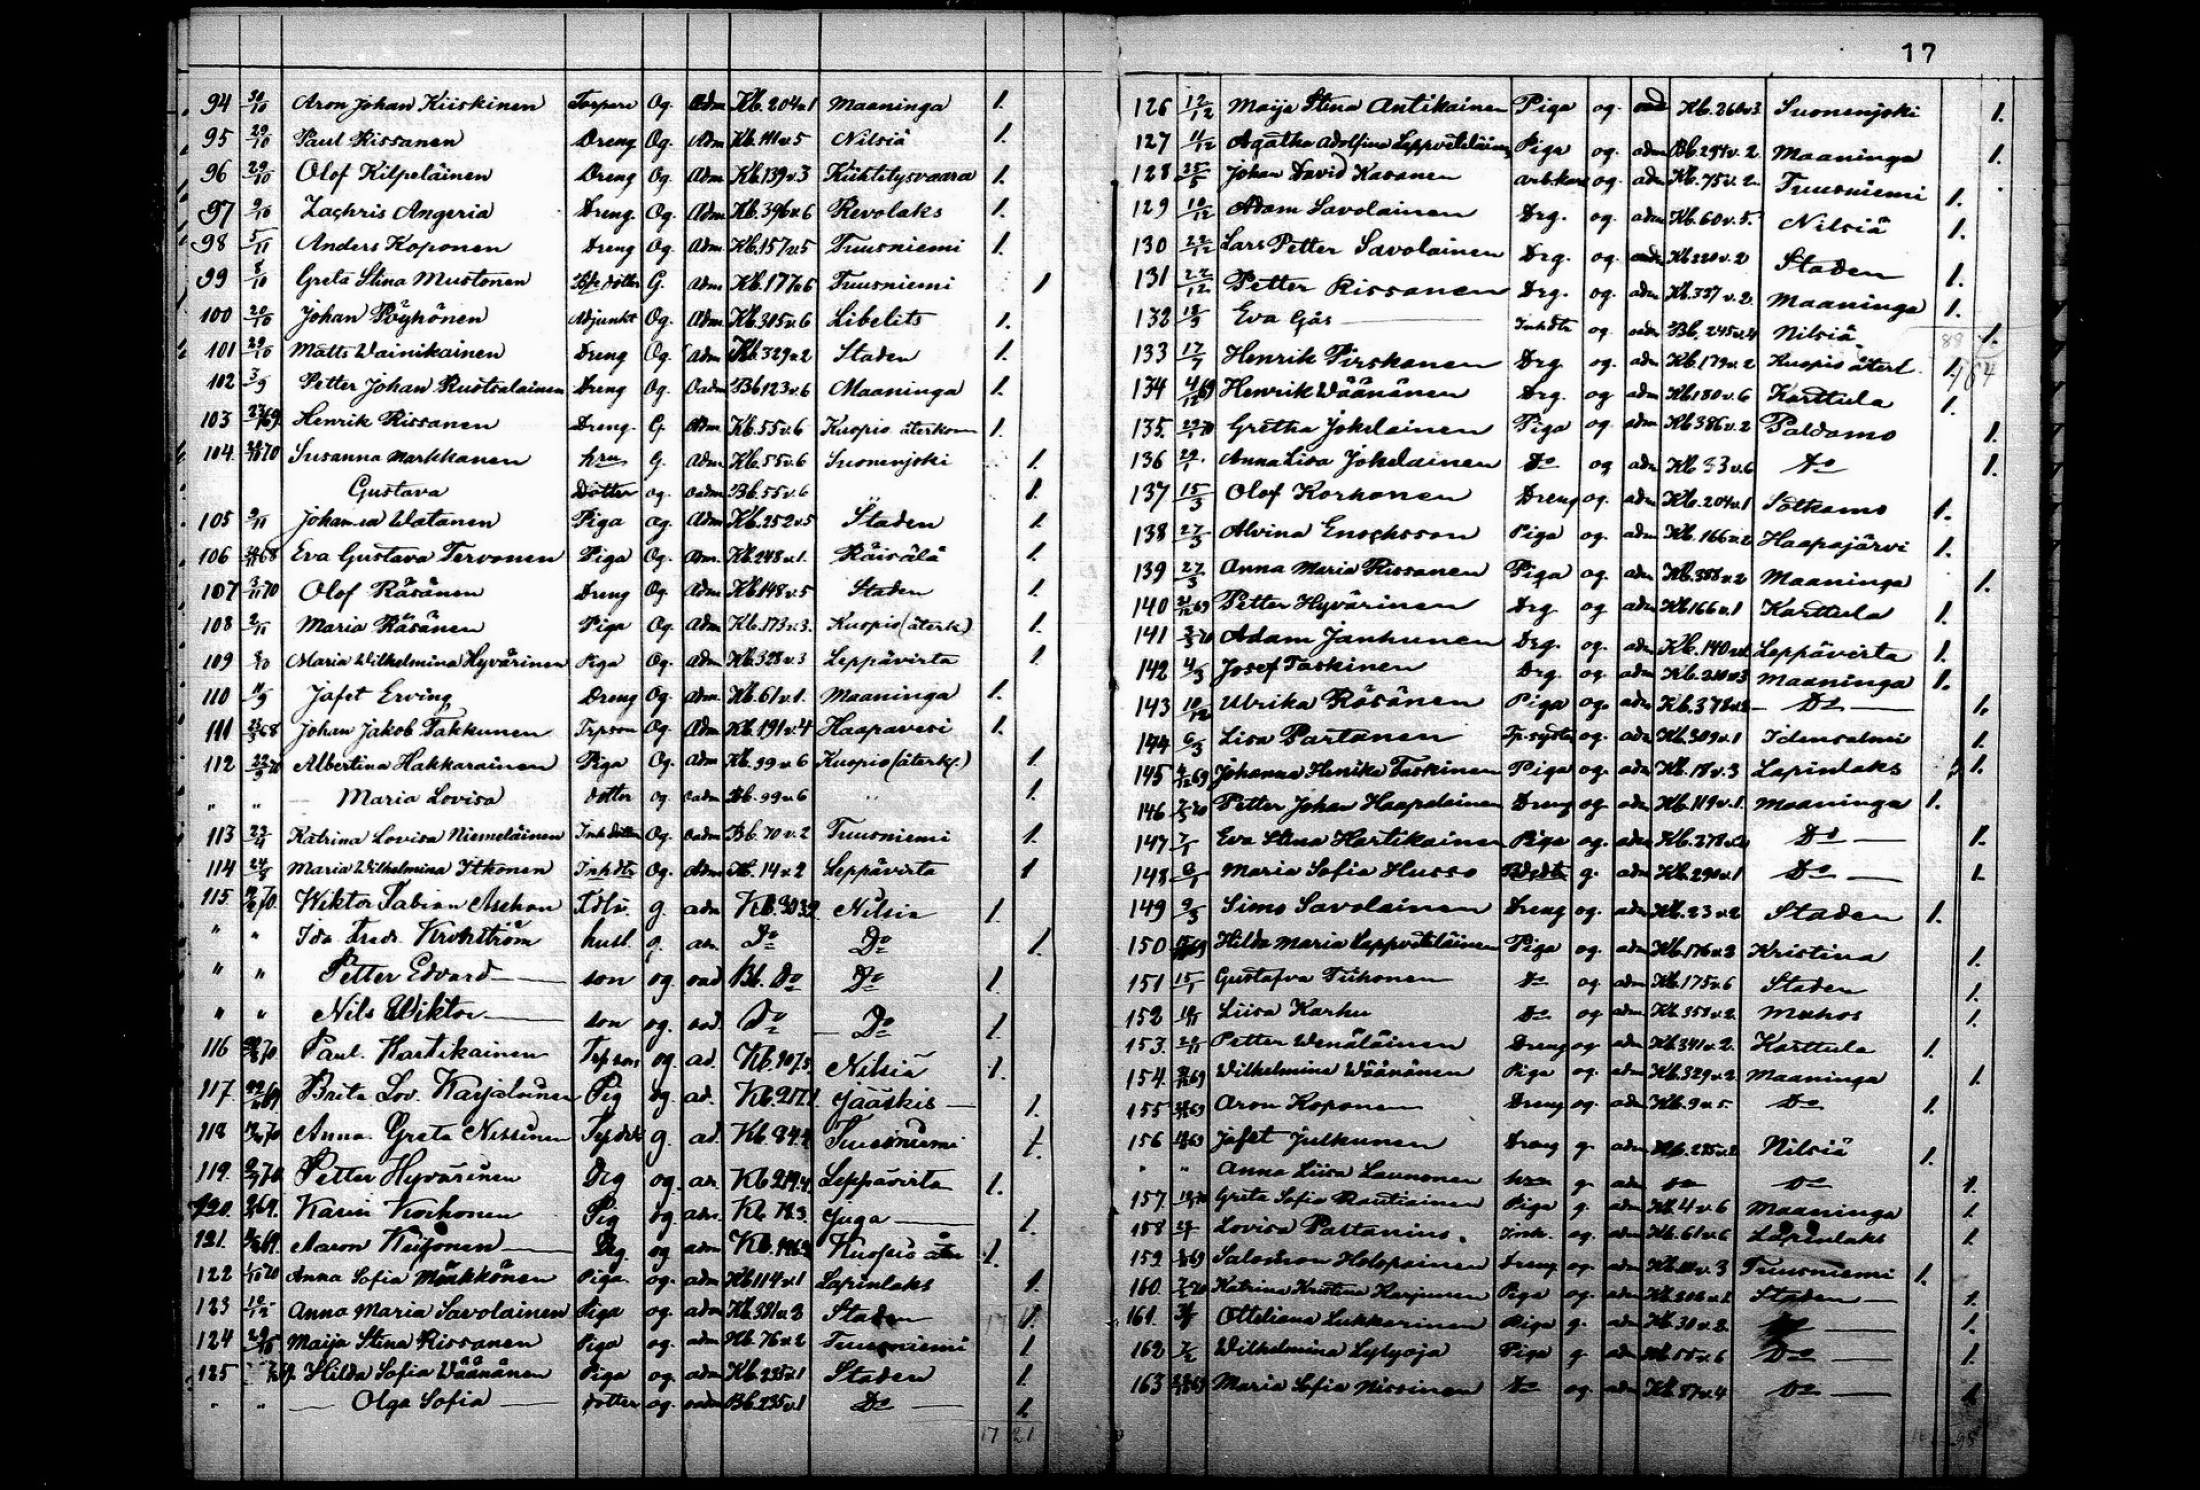 17
94 30/10 Aron Johan Kiiskinen Torpare Og. Adm Kb. 204v.1 Maaninga 1.
95 29/10 Paul Rissanen Dreng Og. Adm Kb. 111v.5 Nilsiä 1.
96 29/10 Olof Kilpeläinen Dreng Og. Adm Kb. 139v.3 Kiihtelysvaara 1.
97 9/10 Zachris Angeria Dreng. Og. Adm Kb. 396v.6 Revolaks 1.
98 5/11 Anders Koponen Dreng Og. Adm. Kb. 157v.5 Tuusniemi 1.
99 8/10 Greta Stina Mustonen dotter G. Adm Kb. 177v.6 Tuusniemi 1
100 20/10 Johan Pöyhönen Adjunkt Og. Adm. Kb. 305v.6 Libelits 1.
101 29/10 Matts Wainikainen Dreng Og. Adm Kb. 329v.2 Staden 1.
102 3/9 Petter Johan Ruotsalainen Dreng Og. Oadm Bb 123v.6 Maaninga 1.
103 Henrik Rissanen Dreng. G. Adm. Kb. 55v.6 Kuopio återkom 1.
104. Susanna Markkanen hru G. Adm. Kb. 55v.6 Suonenjoki 1.
Gustava Dotter og. oadm Bb. 55v.6 1.
105 9/11 Johanna Watanen Piga og. Adm. Kb. 252v.5 Staden 1.
106 Eva Gustava Tervonen Piga Og. Adm. Kb. 248v.1. Räisälä 1.
107 3/11 70 Olof Räsänen Dreng Og. Adm Kb. 148v.5 Staden 1.
108 2/11 Maria Räsänen Piga Og. Adm Kb. 173v.3. Kuopio (återk.) 1.
109 Maria Wilhelmina Hyvärinen Piga Og. Adm Kb. 328v.3 Leppävirta 1.
110 11/9 Jafet Erving Dreng Og Adm. Kb. 61v.1. Maaninga 1.
111 Johan Jakob Takkunen Trpson Og. Adm Kb. 191v.4 Haapavesi 1.
112 Albertina Hakkarainen Piga Og. Adm Kb. 99v.6 Kuopio (återk.) 1.
" " — Maria Lovisa dotter og. oadm Bb. 99v.6 " 1.
113 23/4 Katrina Lovisa Niemeläinen Inhdotter Og. oadm Bb. 70v.2 Tuusniemi 1.
114 Maria Wilhelmina Itkonen Inhdtr Og. Adm Kb. 14v.2 Leppävirta 1
115 Wiktor Fabian Aschan g. adm Kb. Nilsiä 1.
" " Ida Fredr. Krohström hust. g. ad. Do Do 1.
" " Petter Edvard — son og. oad Bb. Do Do 1.
" " Nils Wiktor — son og. oad. Do — Do 1.
116 Paul. Hartikainen Trpson og. ad. Kb. Nilsiä 1.
117. Brita Lov. Karjalainen Pig og. ad. Kb. Jääskis — 1.
118 Anna Greta Nissinen g. ad. Kb. 84.4 Tuusniemi 1.
119. Petter Hyvärinen Drg og. ad. Kb. 219.4. Leppävirta 1.
120. Karin Korhonen Pig og. adm. Kb. 78.3. Juga — 1.
121. Aaron — Drg. og adm Kb. Kuopio åter 1.
122 1/10 70 Anna Sofia Mönkkönen Piga og. adm Kb 114v.1 Lapinlaks 1.
123 Anna Maria Savolainen Piga og. adm Kb. 381v.3 Staden 1.
124 Maija Stina Rissanen Piga og. adm Kb. 76v.2 Tuusniemi 1
125 Hilda Sofia Wäänänen Piga og. adm Kb. 235v.1 Staden 1.
" " — Olga Sofia — dotter og. oadm Bb. 235v.1 Do — 1.
17 21
126 12/12 Maija Stina Antikainen Piga og. oad Kb. 266v.3 Suonenjoki 1.
127 11/12 Agatha Adolfina Leppveteläinen Piga og. adm Bb. 294v.2. Maaninga 1.
128 25/5 Johan David Kasanen arb.karl og. adm Kb. 75v.2. Tuusniemi 1.
129 10/12 Adam Savolainen Drg. og. adm Kb. 60v.5. Nilsiä 1.
130 22/12 Lars Petter Savolainen Drg. og. adm Kb 220v.2 Staden 1.
131 22/12 Petter Rissanen Drg. og. adm Kb. 337v.2. Maaninga 1.
132 18/3 Eva Gås — Inhdtr og. oadm Bb. 245v.4 Nilsiä 1.
133 17/7 Henrik Pirskanen Drg. og. adm Kb. 179v.2 Kuopio återk. 1.
134 4/12 69 Henrik Wäänänen Drg. og adm Kb 180v.6 Karttula 1.
135. Gretha Jokelainen Piga og. adm Kb 386v.2 Paldamo 1.
136 29/1 Anna Lisa Jokelainen Do og adm Kb 33v.6 Do 1.
137 15/3 Olof Korhonen Dreng og. adm Kb. 204v.1 Sotkamo 1.
138 27/3 Alvina Enochsson Piga og. adm Kb. 166v.2 Haapajärvi 1.
139 27/3 Anna Maria Rissanen Piga og. adm Kb. 388v.2 Maaninga 1.
140 Petter Hyvärinen Drg og adm Kb 166v.1 Karttula 1.
141 Adam Janhunen Drg. og. adm Kb. 140v.1 Leppävirta 1.
142 4/3 Josef Taskinen Drg. og. adm Kb. 210v.3 Maaninga 1.
143 10/12 Ulrika Räsänen Piga og. adm Kb. 378v.2 — Do — 1.
144 6/3 Lisa Partanen og. adm Kb. 309v.1 Idensalmi 1.
145 Johanna Henrika Taskinen Piga og. adm Kb. 18v.3 Lapinlaks 1.
146 Petter Johan Haapalainen Dreng og. adm Kb. 119v.1. Maaninga 1.
147 7/1 Eva Stina Hartikainen Piga og. adm Kb. 278v.2 Do — 1.
148 Maria Sofia Husso g. adm Kb. 290v.1 Do — 1.
149 9/3 Simo Savolainen Dreng og. adm Kb. 23v.2 Staden 1.
150 Hilda Maria Leppveteläinen Piga og. adm Kb. 176v.3 Kristina 1.
151 15/1 Gustafva Tiihonen Do og adm Kb. 175v.6 Staden 1.
152 Liisa Karhu Do og adm Kb. 351v.2. Muhos 1.
153. Petter Wenäläinen Dreng og adm Kb. 341v.2. Karttula 1.
154. Wilhelmina Wäänänen Piga og. adm Kb. 329v.2 Maaninga 1.
155 Aron Koponen Dreng og. adm Kb. 9v.5. Do 1.
156 Jafet Julkunen Dreng g. adm Kb. 235v.2 Nilsiä 1.
" " Anna Liisa Launonen hru g. adm Do Do 1.
157. Greta Sofia Rautiainen Piga g. adm Kb. 4v.6 Maaninga 1.
158 Lovisa Partanen Inh. og. adm Kb. 61v.6 Lapinlaks 1.
159 Salomon Holopainen Dreng og. adm Kb. v.3 Tuusniemi 1.
160. Katrina Kristina Karjunen Piga og. adm Kb. 202v.1 Staden — 1.
161. Otteliana Lukkarinen Piga g. adm Kb. 30v.2. Do — 1.
162 7/2 Wilhelmina Lylyoja Piga g adm Kb. 55v.6 Do — 1.
163 Maria Sofia Nissinen Do og adm Kb. 87v.4 Do — 1.